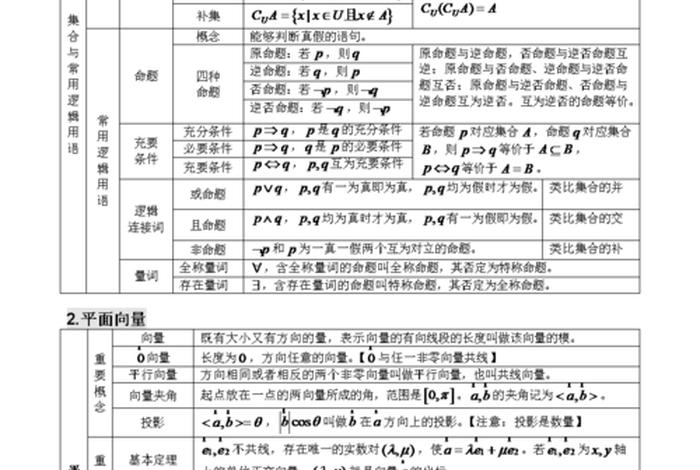 补集 C_U A = {x | x∈U且x∉A} C_U(C_U A) = A
集合与常用逻辑用语
常用逻辑用语
命题
概念 能够判断真假的语句。
四种命题
原命题：若 p，则q
逆命题：若 q，则 p
否命题：若 ¬p，则 ¬q
逆否命题：若 ¬q，则 ¬p
原命题与逆命题，否命题与逆否命题互
逆；原命题与否命题、逆命题与逆否命
题互否；原命题与逆否命题、否命题与
逆命题互为逆否。互为逆否的命题等价。
充要条件
充分条件 p⇒q，p 是 q 的充分条件
必要条件 p⇒q，q 是 p 的必要条件
充要条件 p⇔q，p,q 互为充要条件
若命题 p 对应集合 A，命题 q 对应集合
B，则 p⇒q 等价于 A⊆B，
p⇔q 等价于 A=B。
逻辑连接词
或命题 p∨q，p,q 有一为真即为真，p,q 均为假时才为假。 类比集合的并
且命题 p∧q，p,q 均为真时才为真，p,q 有一为假即为假。 类比集合的交
非命题 ¬p 和 p 为一真一假两个互为对立的命题。 类比集合的补
量词
全称量词 ∀，含全称量词的命题叫全称命题，其否定为特称命题。
存在量词 ∃，含存在量词的命题叫特称命题，其否定为全称命题。
2.平面向量
重要概念
向量 既有大小又有方向的量，表示向量的有向线段的长度叫做该向量的模。
0向量 长度为 0，方向任意的向量。【0与任一非零向量共线】
平行向量 方向相同或者相反的两个非零向量叫做平行向量，也叫共线向量。
向量夹角 起点放在一点的两向量所成的角，范围是[0,π]。a,b的夹角记为<a,b>。
投影 <a,b>=θ，|b|cosθ叫做b在a方向上的投影。【注意：投影是数量】
重
基本定理 e1,e2不共线，存在唯一的实数对(λ,μ)，使a=λe1+μe2。若e1,e2为x,y轴